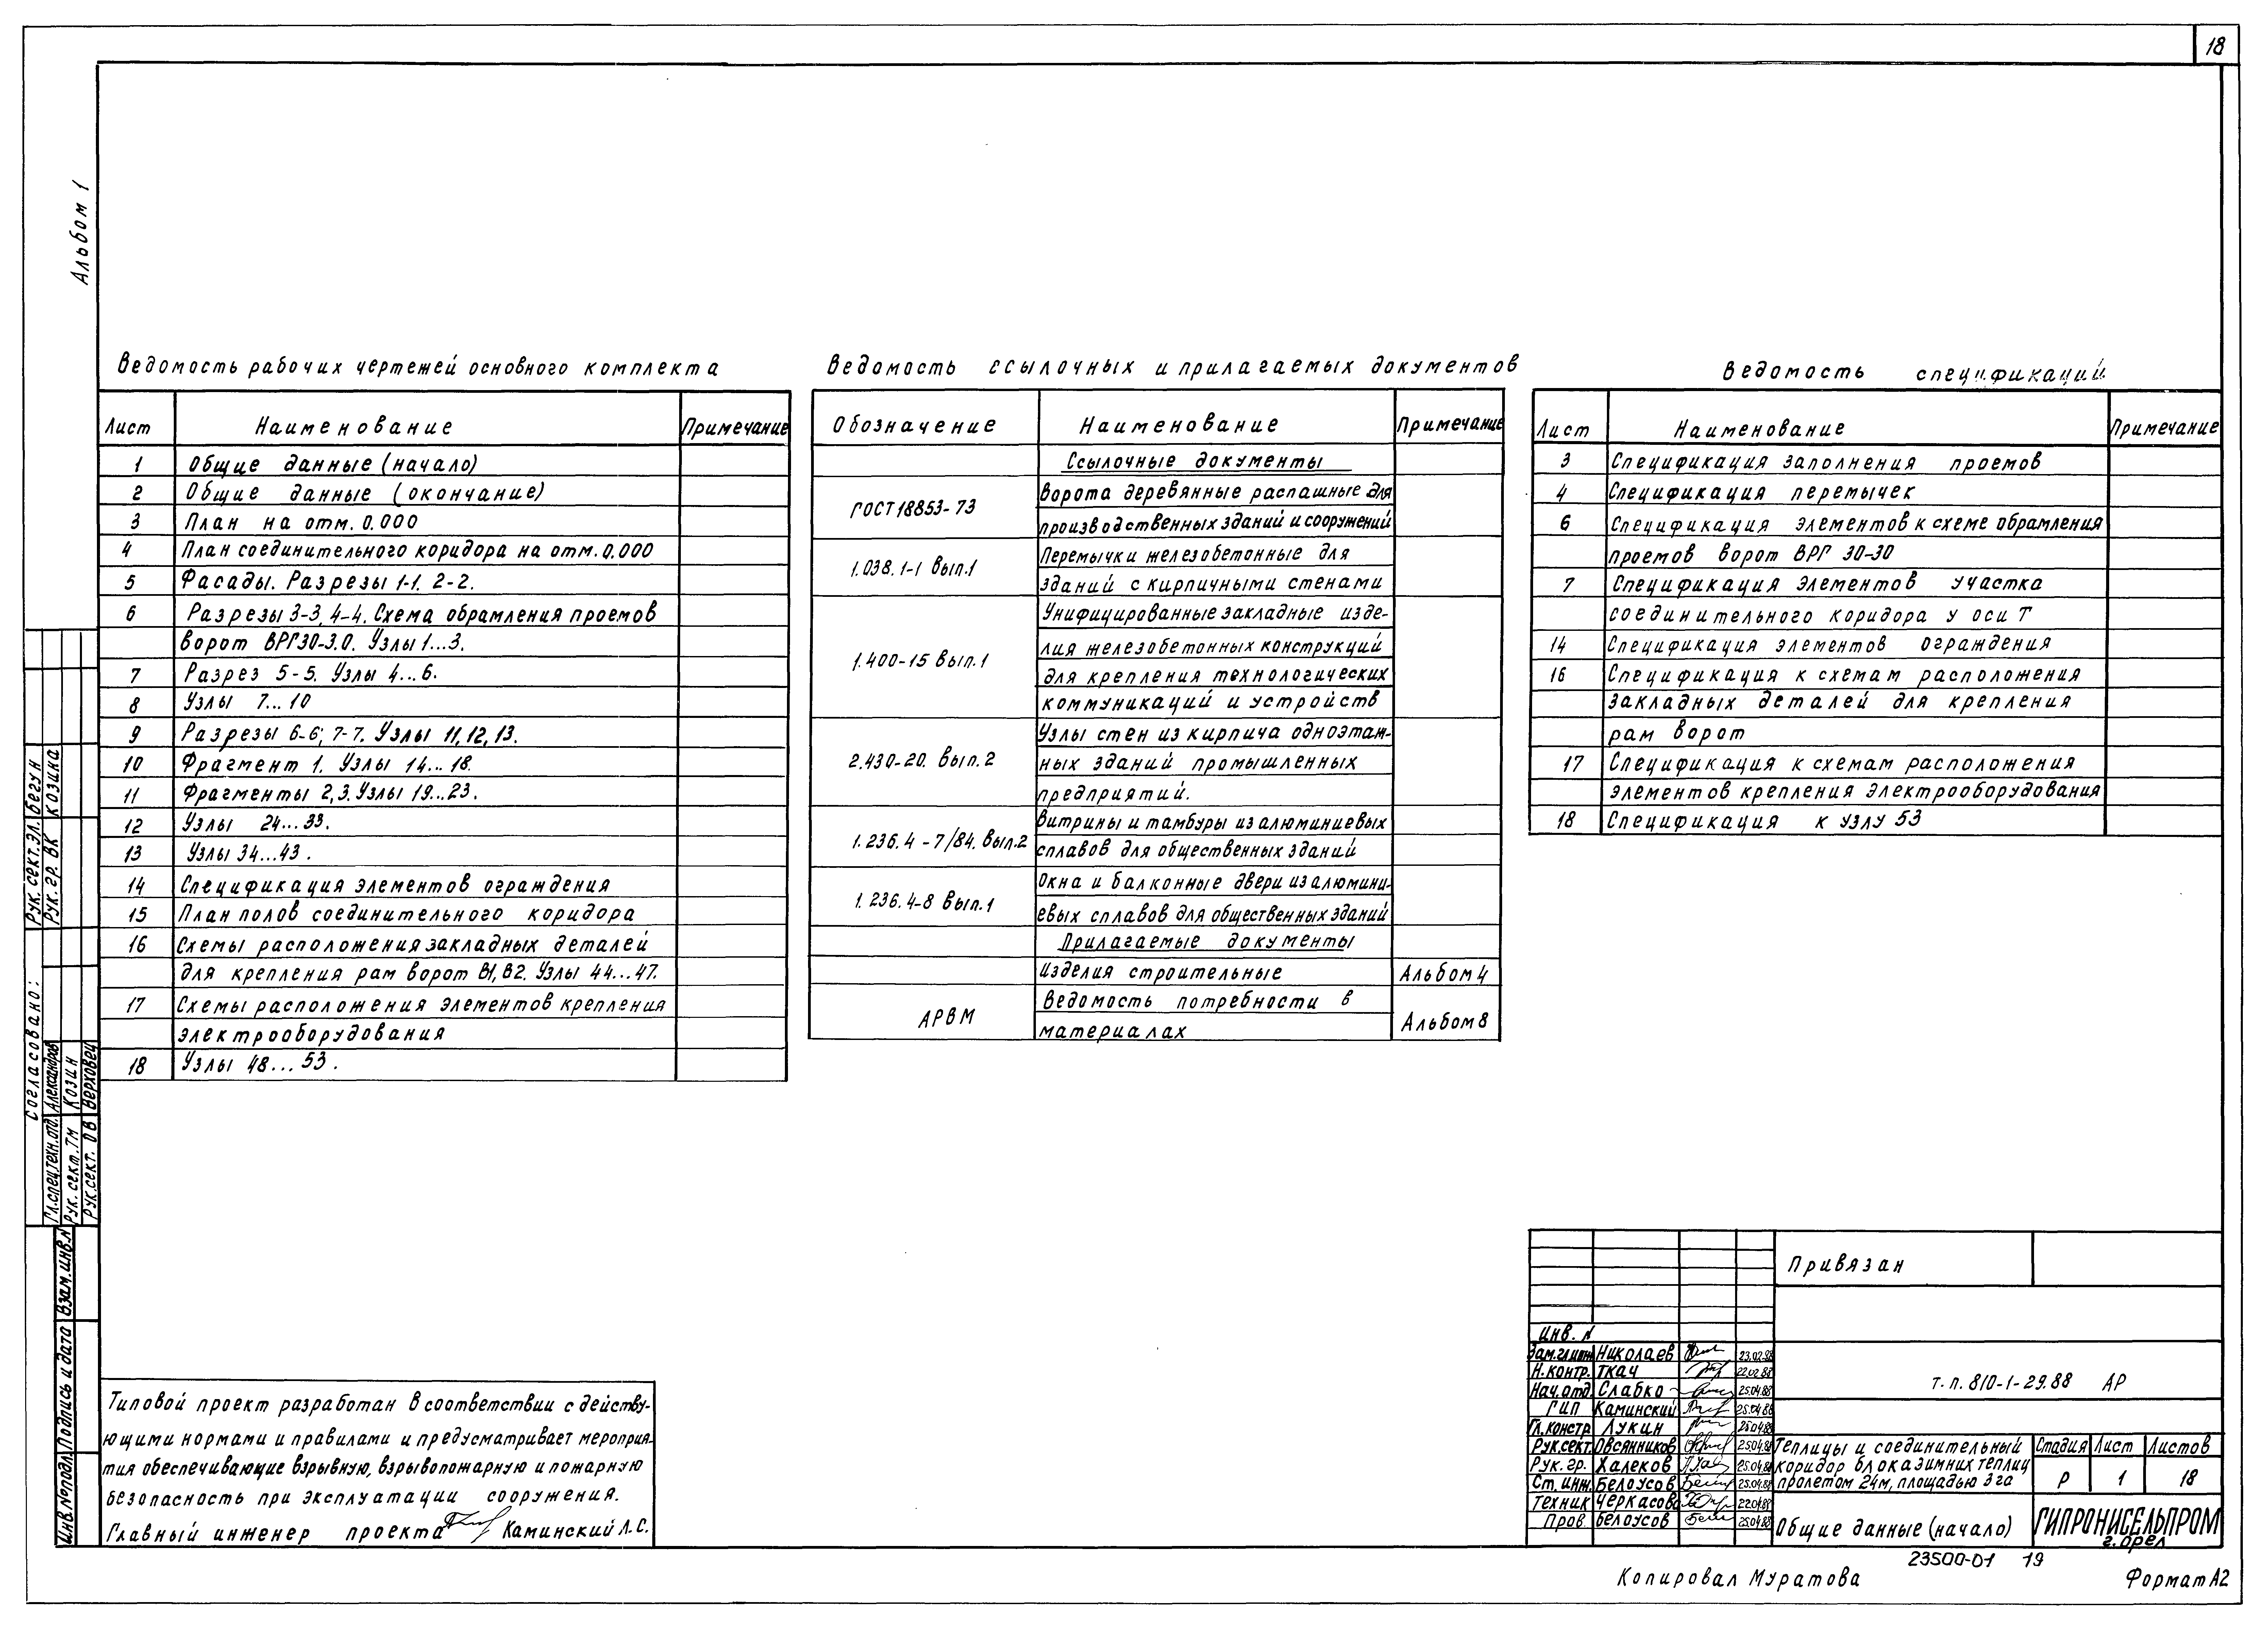 18
Альбом 1
Ведомость рабочих чертежей основного комплекта
Лист Наименование Примечание
1 Общие данные (начало)
2 Общие данные (окончание)
3 План на отм. 0.000
4 План соединительного коридора на отм. 0.000
5 Фасады. Разрезы 1-1. 2-2.
6 Разрезы 3-3, 4-4. Схема обрамления проемов
ворот ВРГ30-3.0. Узлы 1...3.
7 Разрез 5-5. Узлы 4...6.
8 Узлы 7...10
9 Разрезы 6-6; 7-7. Узлы 11, 12, 13.
10 Фрагмент 1. Узлы 14...18.
11 Фрагменты 2,3. Узлы 19...23.
12 Узлы 24...33.
13 Узлы 34...43.
14 Спецификация элементов ограждения
15 План полов соединительного коридора
16 Схемы расположения закладных деталей
для крепления рам ворот В1, В2. Узлы 44...47.
17 Схемы расположения элементов крепления
электрооборудования
18 Узлы 48...53.
Ведомость ссылочных и прилагаемых документов
Обозначение Наименование Примечание
Ссылочные документы
ГОСТ 18853-73 Ворота деревянные распашные для
производственных зданий и сооружений
1.038.1-1 Вып.1 Перемычки железобетонные для
зданий с кирпичными стенами
1.400-15 Вып.1 Унифицированные закладные изде-
лия железобетонных конструкций
для крепления технологических
коммуникаций и устройств
2.430-20. Вып.2 Узлы стен из кирпича одноэтаж-
ных зданий промышленных
предприятий.
1.236.4-7/84. Вып.2 Витрины и тамбуры из алюминиевых
сплавов для общественных зданий
1.236.4-8 Вып.1 Окна и балконные двери из алюмини-
евых сплавов для общественных зданий
Прилагаемые документы
Изделия строительные Альбом 4
АРВМ Ведомость потребности в
материалах Альбом 8
Ведомость спецификаций
Лист Наименование Примечание
3 Спецификация заполнения проемов
4 Спецификация перемычек
6 Спецификация элементов к схеме обрамления
проемов ворот ВРГ 30-30
7 Спецификация элементов участка
соединительного коридора у оси Т
14 Спецификация элементов ограждения
16 Спецификация к схемам расположения
закладных деталей для крепления
рам ворот
17 Спецификация к схемам расположения
элементов крепления электрооборудования
18 Спецификация к узлу 53
Рук. сект. эл. Бегун
Рук. гр. ВК Козина
Согласовано:
Гл.спец.техн.отд. Александров
Рук. сект. ТМ Козин
Рук. сект. ОВ Верховец
Взам.инв.N
Подпись и дата
Инв.Nподл.
Типовой проект разработан в соответствии с действу-
ющими нормами и правилами и предусматривает мероприя-
тия обеспечивающие взрывную, взрывопожарную и пожарную
безопасность при эксплуатации сооружения.
Главный инженер проекта Каминский Л.С.
Привязан
Инв. N
Зам.гл.инж Николаев 23.02.88
Н.контр. Ткач 22.02.88
Нач.отд. Слабко 25.04.88
ГИП Каминский 25.04.88
Гл.констр Лукин 25.04.88
Рук.сект. Овсянников 25.04.88
Рук. гр. Халеков 25.04.88
Ст. инж. Белоусов 25.04.88
Техник Черкасова 22.04.88
Пров. Белоусов 25.04.88
т.п. 810-1-29.88 АР
Теплицы и соединительный
коридор блока зимних теплиц
пролетом 24м, площадью 3 га
Стадия Лист Листов
Р 1 18
Общие данные (начало)
ГИПРОНИСЕЛЬПРОМ
г. Орел
23500-01 19
Копировал Муратова
Формат А2